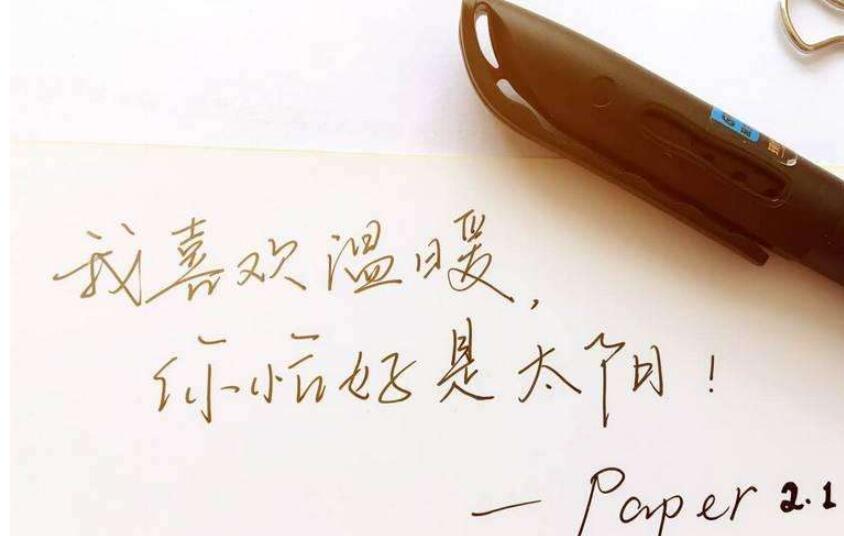 我喜欢温暖，
你恰好是太阳！
— Paper 2.1